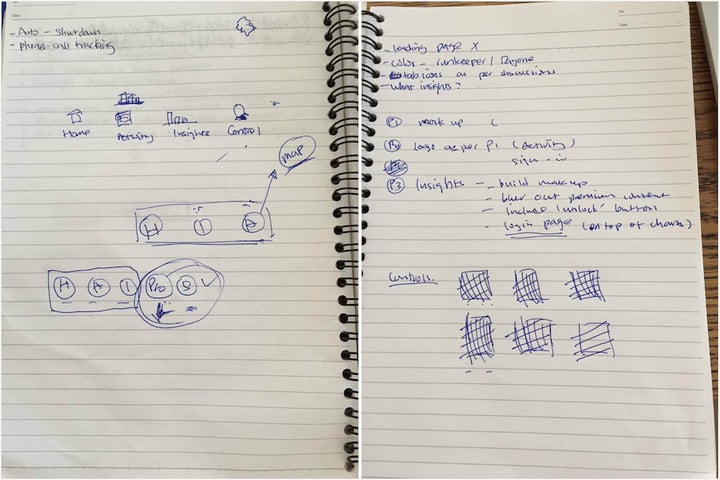 - Auto - shutdown
- Phone-call tracking
Home
Activity
Insights
Control
map
H
I
A
H
A
I
Pro
S
Date
No.
Date
- loading page X
- color - runkeeper /
- tab icons as per discussions
- what insights?
P1 mock up
logo as per P1 (activity)
sign
P3 Insights - build mockup
- blur out premium content
- include 'unlock' button
- login page (on top of charts)
Controls: